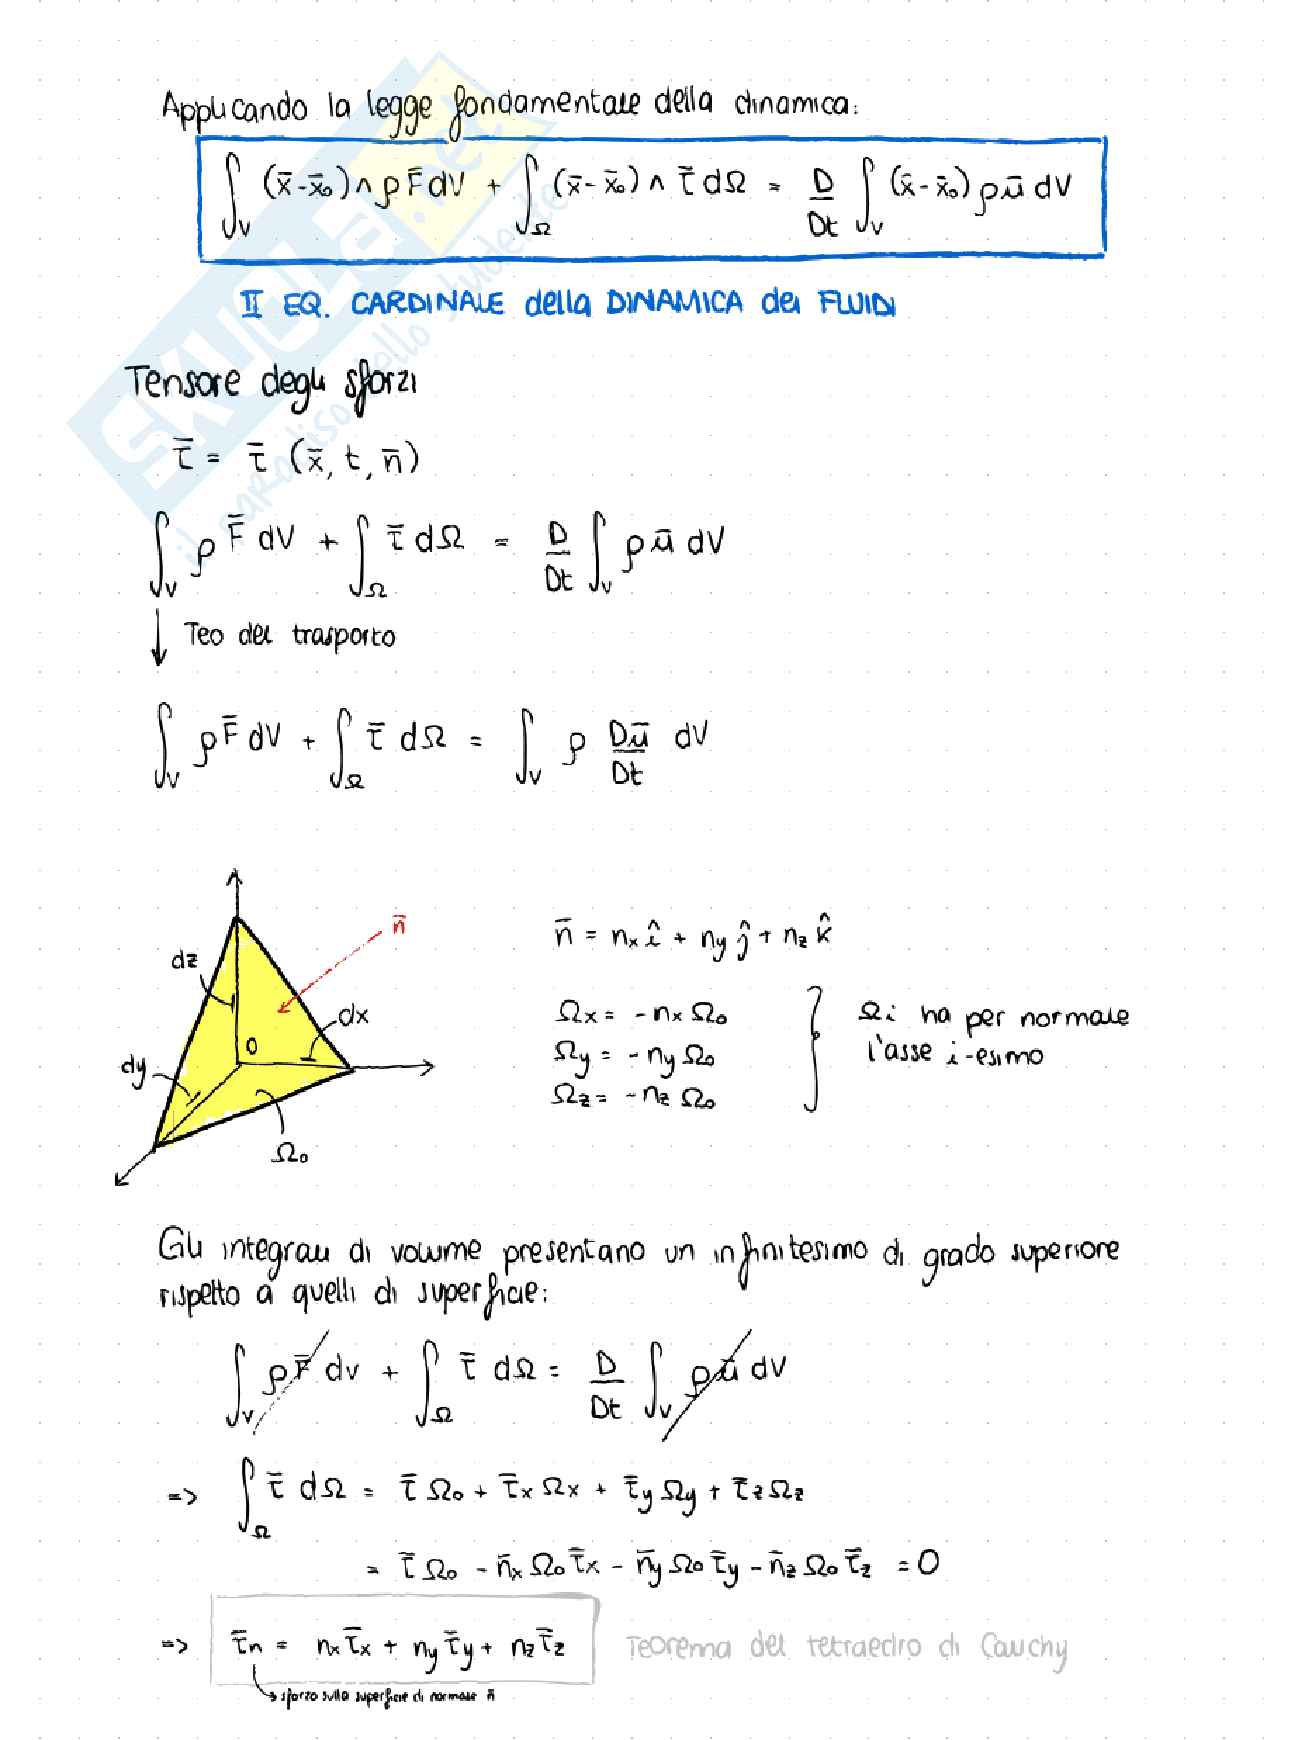 Applicando la legge fondamentale della dinamica:
∫_V (x̄-x̄₀) ∧ ρ F̄ dV + ∫_Ω (x̄-x̄₀) ∧ τ̄ dΩ = D/Dt ∫_V (x̄-x̄₀) ρ ū dV
II EQ. CARDINALE della DINAMICA dei FLUIDI
Tensore degli sforzi
τ̄ = τ̄ (x̄, t, n̄)
∫_V ρ F̄ dV + ∫_Ω τ̄ dΩ = D/Dt ∫_V ρ ū dV
↓ Teo del trasporto
∫_V ρ F̄ dV + ∫_Ω τ̄ dΩ = ∫_V ρ Dū/Dt dV
n̄
dz
dx
O
dy
Ω₀
n̄ = nx î + ny ĵ + nz k̂
Ωx = - nx Ω₀
Ωy = - ny Ω₀
Ωz = - nz Ω₀
Ωi ha per normale
l'asse i-esimo
Gli integrali di volume presentano un infinitesimo di grado superiore
rispetto a quelli di superficie:
∫_V ρ F̄ dV + ∫_Ω τ̄ dΩ = D/Dt ∫_V ρ ū dV
=> ∫_Ω τ̄ dΩ = τ̄ Ω₀ + τ̄x Ωx + τ̄y Ωy + τ̄z Ωz
= τ̄ Ω₀ - n̄x Ω₀ τ̄x - n̄y Ω₀ τ̄y - n̄z Ω₀ τ̄z = 0
=> τ̄n = nx τ̄x + ny τ̄y + nz τ̄z Teorema del tetraedro di Cauchy
→ sforzo sulla superficie di normale n̄
SKUOLA.net
il paradiso dello studente